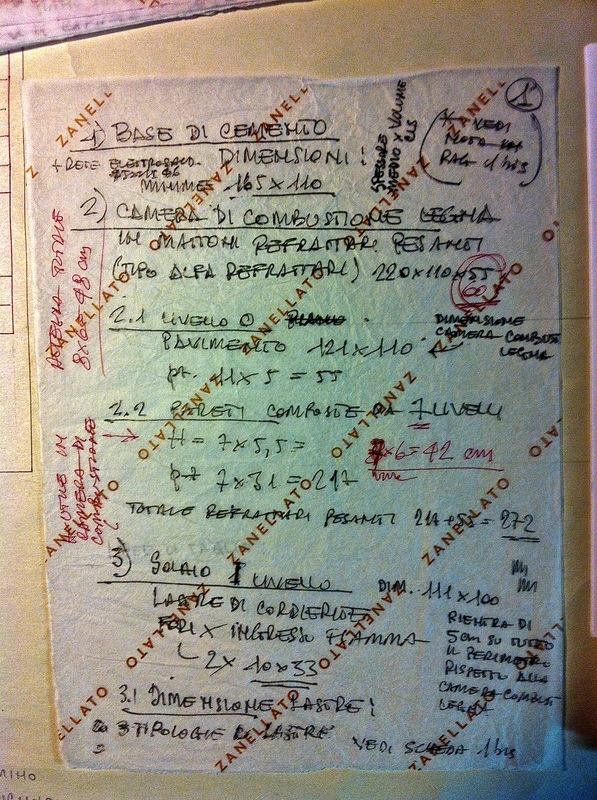 1
1) BASE DI CEMENTO
+ RETE ELETTROSALD. DIMENSIONI:
MINIME 165x110
SPESSORE MEDIO x VOLUME CLS
* VEDI
NOTA IN
PAG 1 bis
2) CAMERA DI COMBUSTIONE LEGNA
IN MATTONI REFRATTARI PESANTI
(TIPO ALFA REFRATTARI) 220x110x55
60
ALTEZZA TOTALE
8x6=48 cm
2.1 LIVELLO 0
PAVIMENTO 121x110
DIMENSIONE
CAMERA COMBUST
LEGNA
pz. 11x5=55
2.2 PARETI COMPOSTE DA 7 LIVELLI
H= 7x5,5=
7x6=42 cm
pz 7x31=217
H UTILE IN
CAMERA DI
COMBUSTIONE
TOTALE REFRATTARI PESANTI 217+55=272
3) SOLAIO 1 LIVELLO DIM. 111x100
LASTRE DI CORDIERITE
FORI X INGRESSO FIAMMA
2x 10x33
RIENTRA DI
5cm SU TUTTO
IL PERIMETRO
RISPETTO ALLA
CAMERA COMBUST
LEGNA
3.1 DIMENSIONE LASTRE:
3 TIPOLOGIE DI LASTRE
VEDI SCHEDA 1 bis
ZANELLATO
ZANELLATO
ZANELLATO
ZANELLATO
ZANELLATO
ZANELLATO